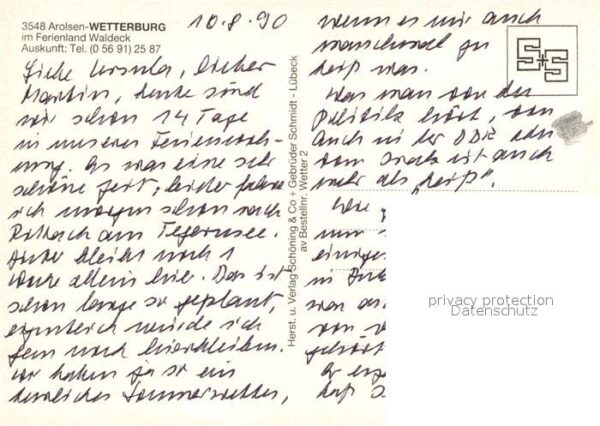 3548 Arolsen-WETTERBURG
im Ferienland Waldeck
Auskunft: Tel. (0 56 91) 25 87
10.8.90
Liebe Ursula, lieber
Martin, heute sind
wir schon 14 Tage
in unserer Ferienwoh-
nung. Es war eine sehr
schöne Zeit, leider fahre
ich morgen schon nach
Rottach am Tegernsee.
bleibt noch 1
Woche allein hier. Das ist
schon lange so geplant,
eigentlich würde ich
gern noch hierbleiben.
Wir haben ja so ein
herrliches Sommerwetter,
Herst. u. Verlag Schöning & Co + Gebrüder Schmidt - Lübeck
av Bestellnr. Wetter 2
wenn es mir auch
manchmal zu
heiß war.
Was man von der
Politik hört, von
auch in der DDR
vom ist auch
mehr als "heiß".
Wie
nun
einige
in
man
von
gehört
Er
daß
S+S
privacy protection
Datenschutz